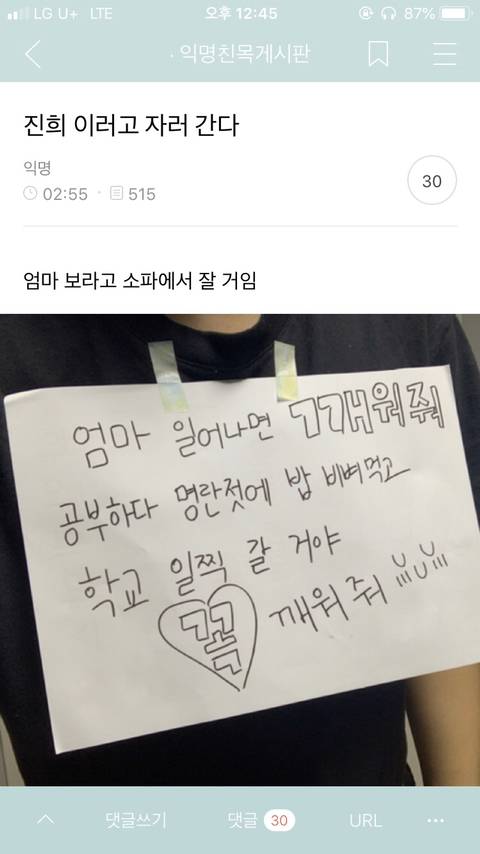 LG U+ LTE 오후 12:45 87%
· 익명친목게시판
진희 이러고 자러 간다
익명
02:55 · 515
30
엄마 보라고 소파에서 잘 거임
엄마 일어나면 깨워줘
공부하다 명란젓에 밥 비벼먹고
학교 일찍 갈 거야
꼭 깨워줘
댓글쓰기 댓글 30 URL